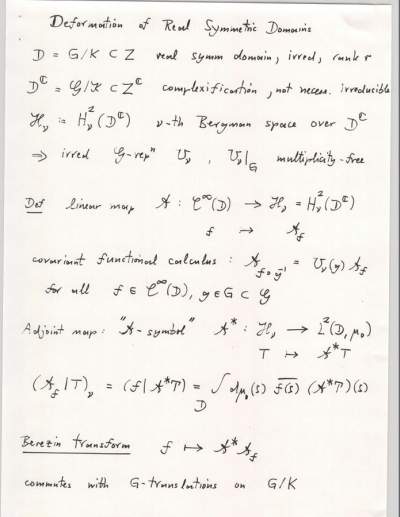 Deformation of Real Symmetric Domains
D = G/K ⊂ Z real symm domain, irred, rank r
D^ℂ = 𝒢/𝒦 ⊂ Z^ℂ complexification, not necess. irreducible
ℋ_ν := H²_ν(D^ℂ) ν-th Bergman space over D^ℂ
⇒ irred 𝒢-rep^n U_ν, U_ν|_G multiplicity-free
Def linear map 𝒜 : 𝒞^∞(D) → ℋ_ν = H²_ν(D^ℂ)
f ↦ 𝒜_f
covariant functional calculus : 𝒜_{f∘g⁻¹} = U_ν(g) 𝒜_f
for all f ∈ 𝒞^∞(D), g ∈ G ⊂ 𝒢
Adjoint map: "𝒜-symbol" 𝒜* : ℋ_ν → L²(D, μ₀)
T ↦ 𝒜*T
(𝒜_f | T)_ν = (f | 𝒜*T) = ∫_D dμ₀(s) \overline{f(s)} (𝒜*T)(s)
Berezin transform f ↦ 𝒜*𝒜_f
commutes with G-translations on G/K